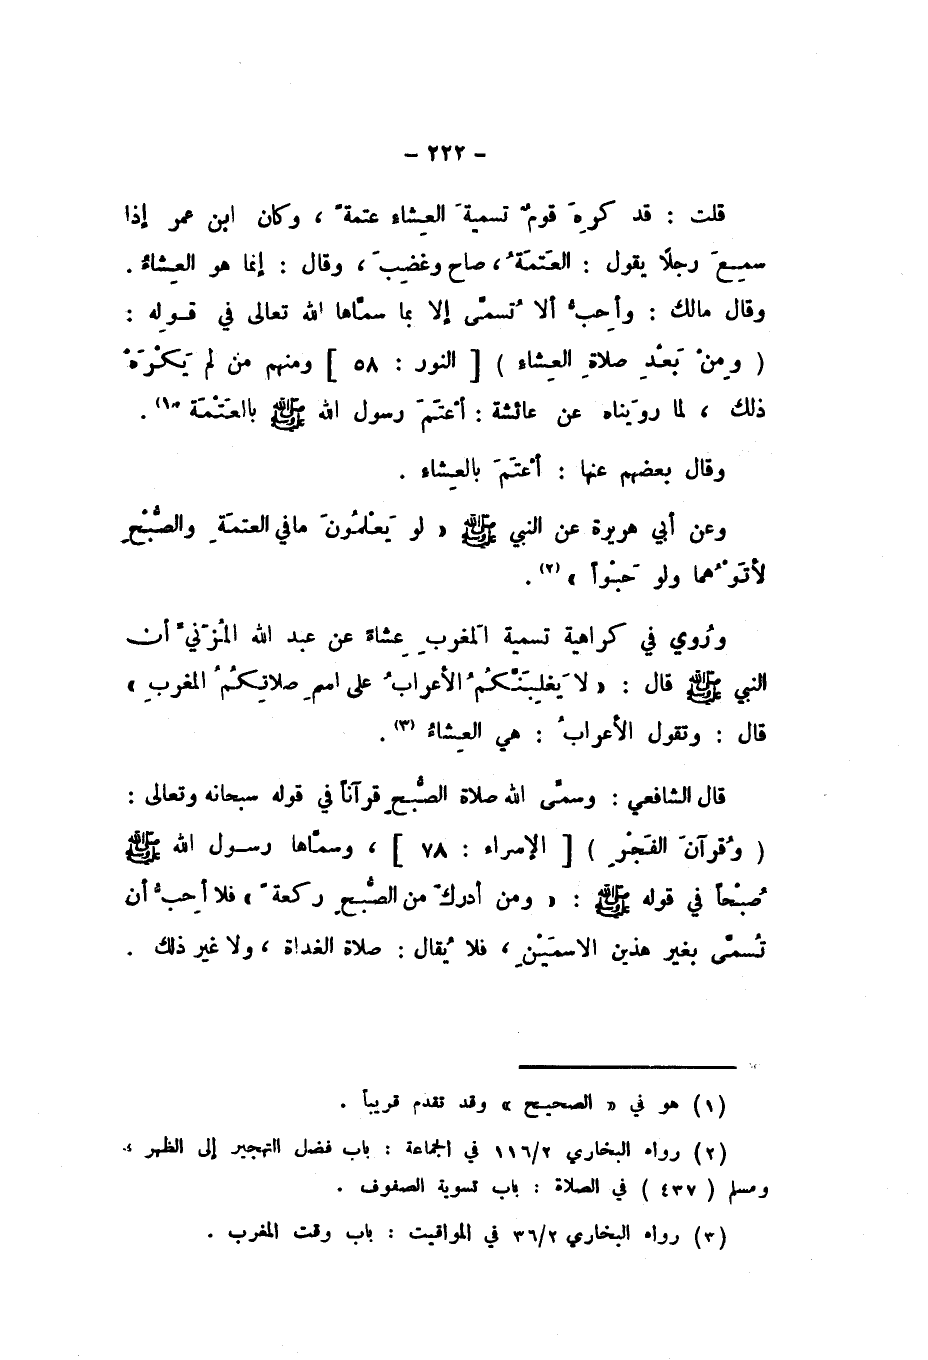 - ٢٢٢ -
قلت : قد كرِهَ قومٌ تسميةَ العِشاء عتمةً ، وكان ابن عمر إذا
سمِعَ رجلًا يقول : العَتمَةُ ، صاح وغضِبَ ، وقال : إنما هو العِشاءُ .
وقال مالك : وأحِبُّ ألا تُسمَّى إلا بما سمَّاها الله تعالى في قوله :
( ومِنْ بَعْدِ صلاةِ العِشاء ) [ النور : ٥٨ ] ومنهم من لم يَكْرَهْ
ذلك ، لما رويناه عن عائشة : أَعْتَمَ رسول الله ﷺ بالعَتْمَة (١) .
وقال بعضهم عنها : أَعْتَمَ بالعِشاء .
وعن أبي هريرة عن النبي ﷺ « لو يَعْلمُونَ مافي العتمَةِ والصُّبْحِ
لأتَوْهُما ولو حَبْواً » (٢) .
ورُوي في كراهية تسمية المغربِ عِشاءً عن عبد الله المُزَنيِّ أن
النبي ﷺ قال : « لا يَغلِبَنَّكُمُ الأعرابُ على اسمِ صلاتِكُمُ المغربِ »
قال : وتقول الأعرابُ : هي العِشاءُ (٣) .
قال الشافعي : وسمَّى الله صلاة الصُّبحِ قرآناً في قوله سبحانه وتعالى :
( وقُرآنَ الفَجْرِ ) [ الإسراء : ٧٨ ] ، وسمَّاها رسول الله ﷺ
صُبْحاً في قوله ﷺ : « ومن أدركَ من الصُّبحِ ركعةً » فلا أحِبُّ أن
تُسمَّى بغير هذين الاسمَيْنِ ، فلا يُقال : صلاة الغداة ، ولا غير ذلك .
(١) هو في « الصحيح » وقد تقدم قريباً .
(٢) رواه البخاري ١١٦/٢ في الجماعة : باب فضل التهجير إلى الظهر ،
ومسلم ( ٤٣٧ ) في الصلاة : باب تسوية الصفوف .
(٣) رواه البخاري ٣٦/٢ في المواقيت : باب وقت المغرب .